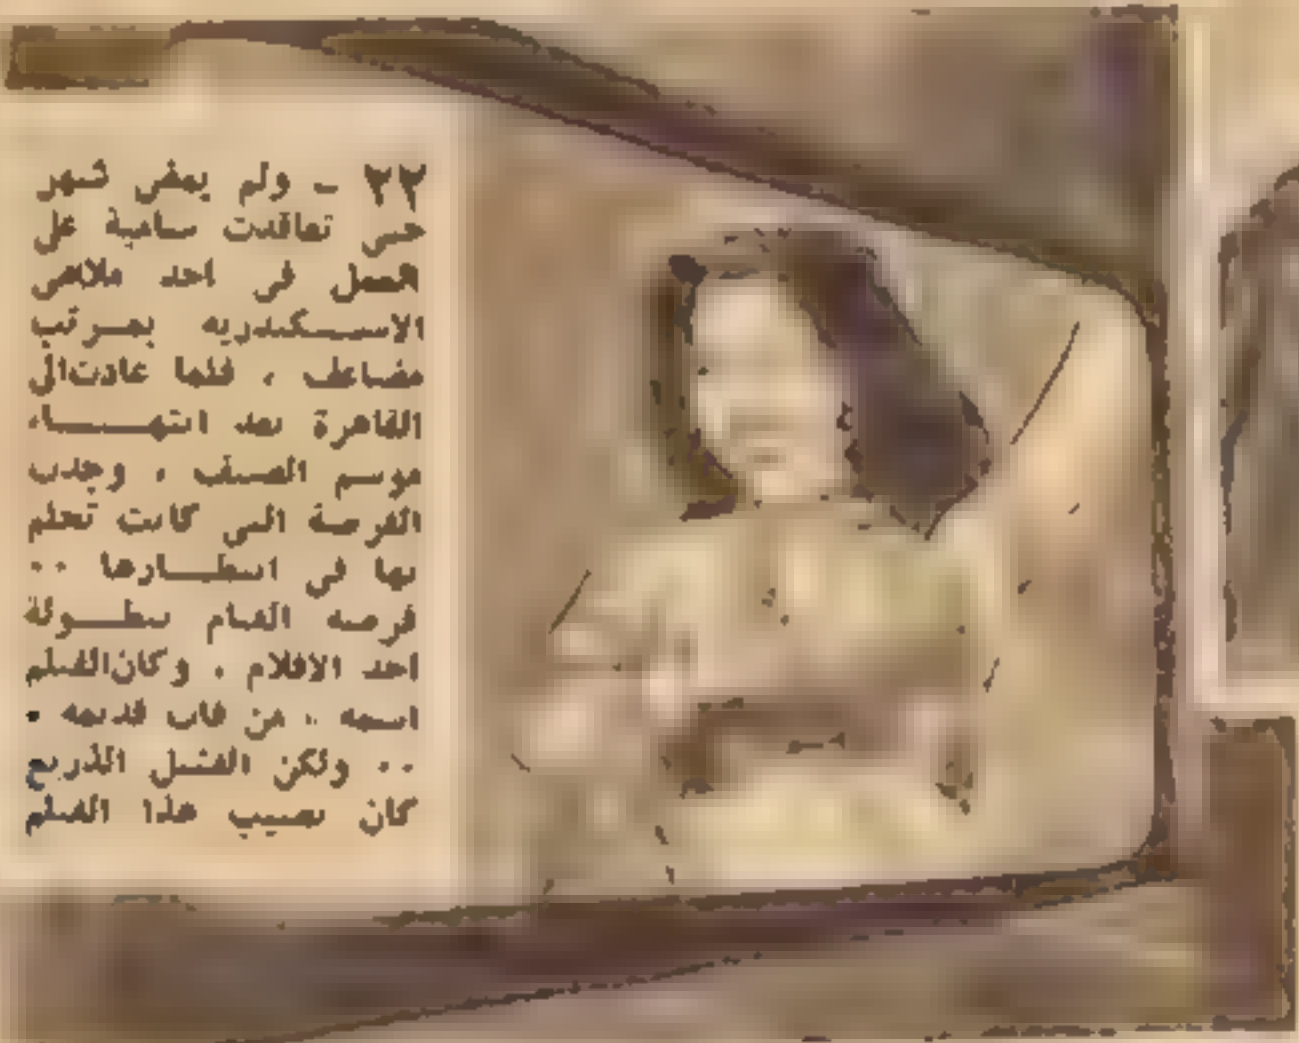 ٢٢ ـ ولم يمض شهر
حتى تعاقدت سامية على
العمل في احد ملاهى
الاســكندريه بمــرتب
مضاعف ، فلما عادت الى
القاهرة بعد انتهـــاء
موسم الصيف ، وجدت
الفرصة التي كانت تحلم
بها في انتظــارها ٠٠
فرصه القيام ببطــولة
احد الافلام ، وكان الفيلم
اسمه ، من فات قديمه ،
٠٠ ولكن الفشل الذريع
كان نصيب هذا الفيلم